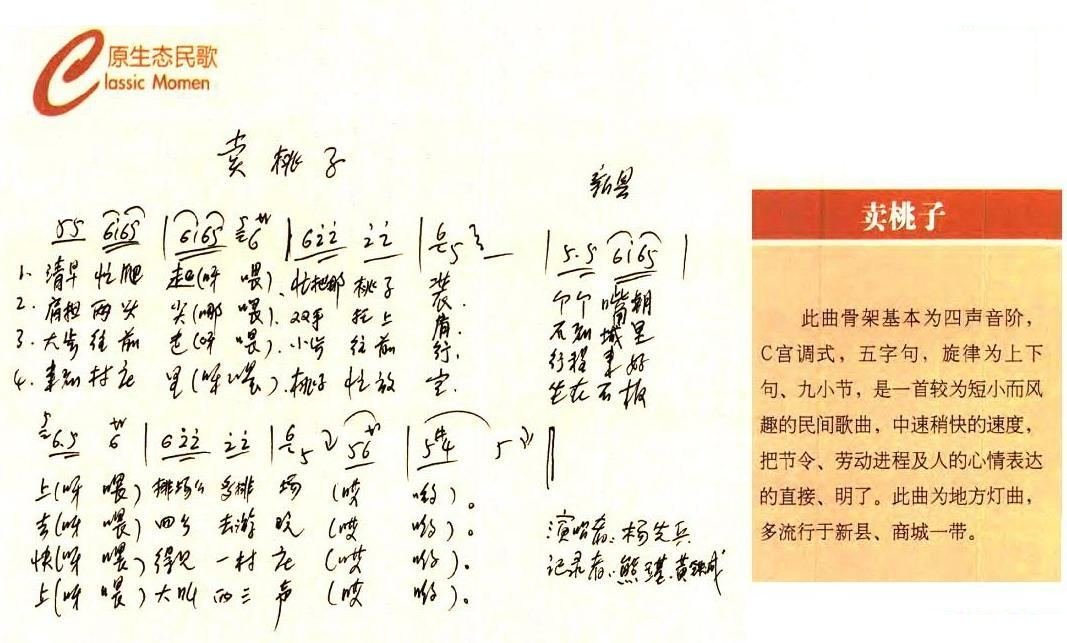 原生态民歌
Classic Momen
卖桃子
新县
55 6i65 | 6i65 6 | 62̇2̇ 2̇2̇ | 6 5 | 5.5 6i65 |
1. 清早忙爬起(呀喂).忙把那桃子装. 个个嘴朝
2. 肩担两头尖(哪喂).双手托上肩.
3. 大步往前走(呀喂).小步往前行. 行程来好
4. 来到村庄里(呀喂).桃子忙放定. 坐在石板
6.5 6 | 62̇2̇ 2̇2̇ | 6 5 | 56 | 5 #4 5 ‖
上(呀喂)排场多排场(哎哟)。
去(呀喂)四乡去游玩(哎哟)。
快(呀喂)得见一村庄(哎哟)。
上(呀喂)大叫两三声(哎哟)。
演唱者:杨先兵
记录者:熊 黄铁成
卖桃子
此曲骨架基本为四声音阶,
C宫调式，五字句，旋律为上下
句、九小节，是一首较为短小而风
趣的民间歌曲，中速稍快的速度，
把节令、劳动进程及人的心情表达
的直接、明了。此曲为地方灯曲，
多流行于新县、商城一带。